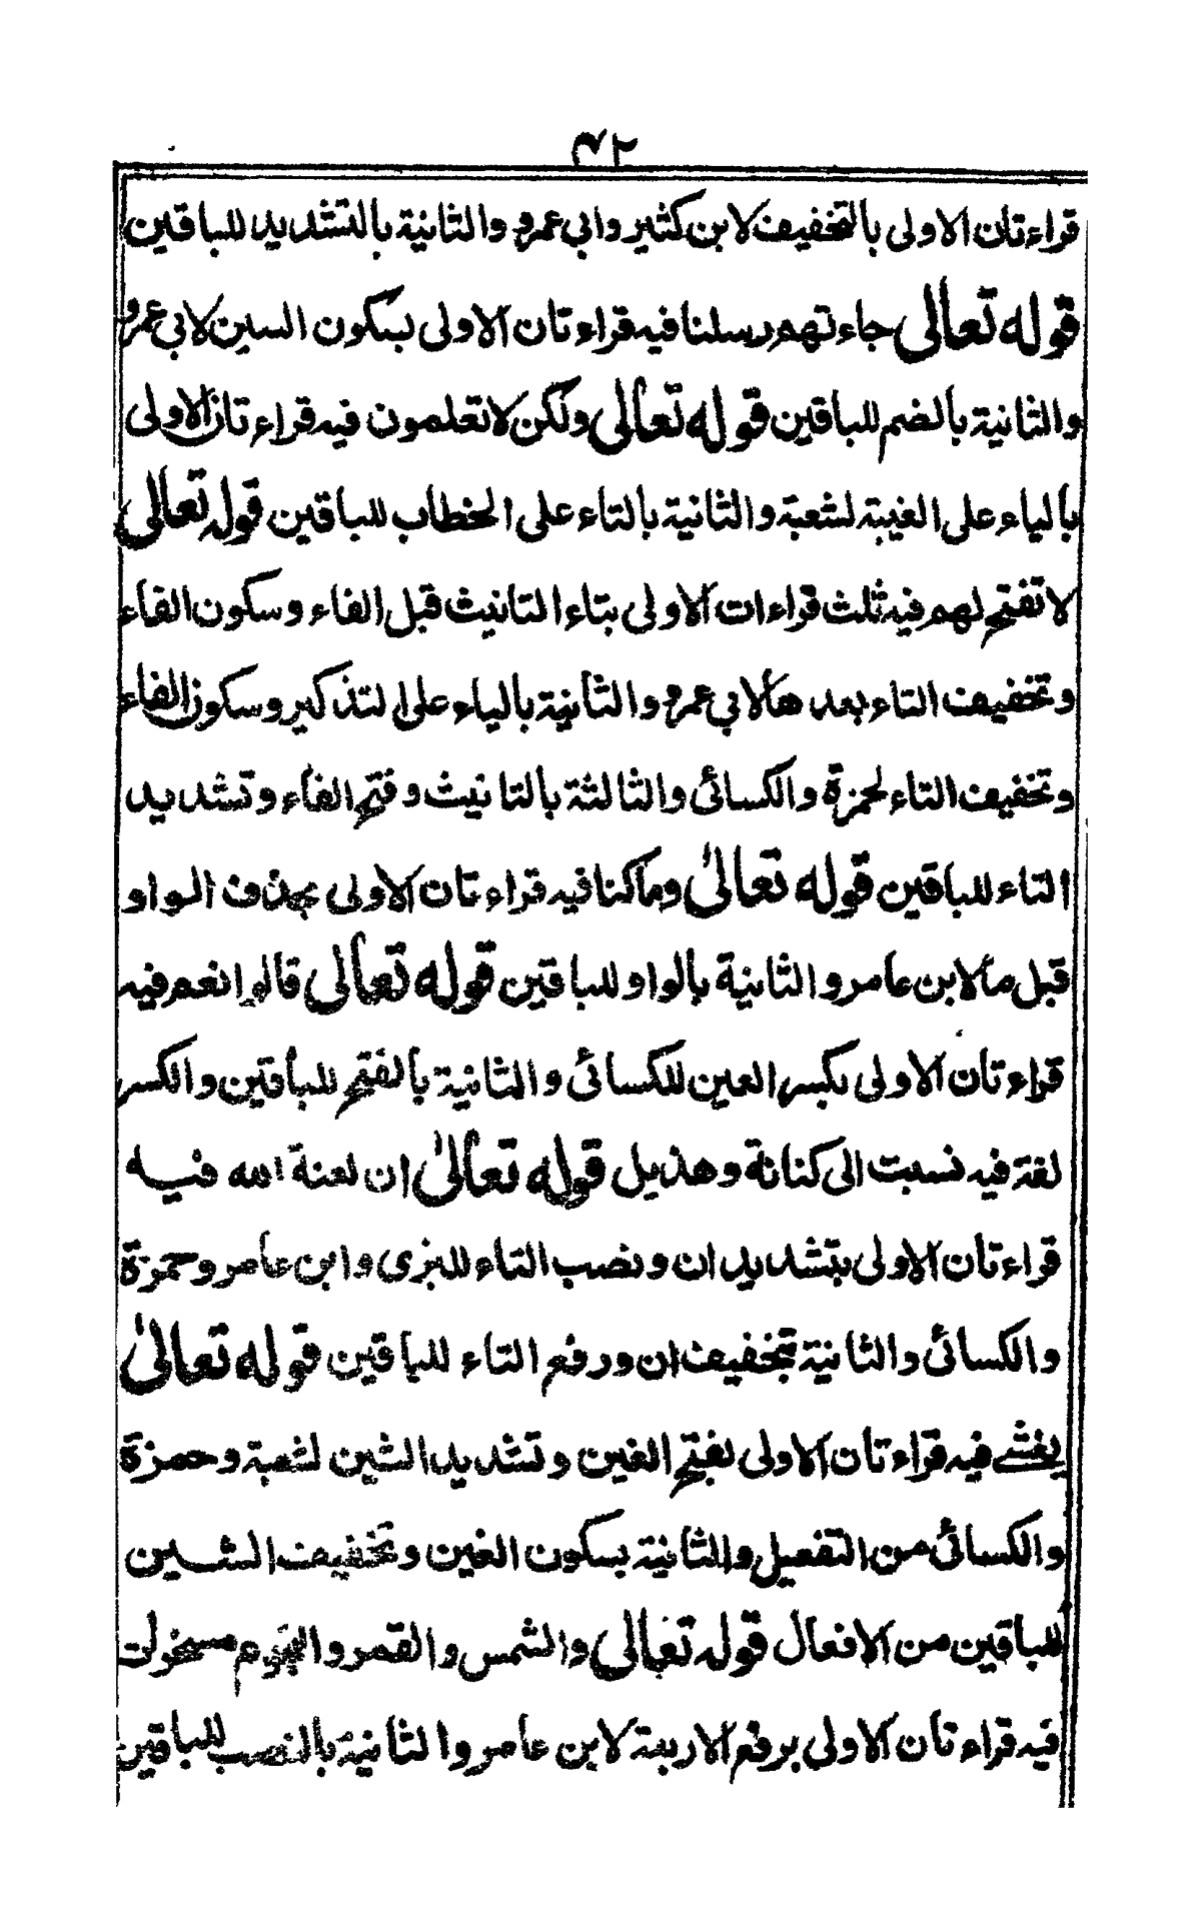 ٧٢
قراءتان الاولى بالتخفيف لابن كثير وابي عمرو والثانية بالتشديد للباقين
قوله تعالى جاءتهم رسلنا فيه قراءتان الاولى بسكون السين لابي عمرو
والثانية بالضم للباقين قوله تعالى ولكن لا تعلمون فيه قراءتان الاولى
بالياء على الغيبة لشعبة والثانية بالتاء على الخطاب للباقين قوله تعالى
لا تفتح لهم فيه ثلث قراءات الاولى بتاء التانيث قبل الفاء وسكون الفاء
وتخفيف التاء بعدها لابي عمرو والثانية بالياء على التذكير وسكون الفاء
وتخفيف التاء لحمزة والكسائي والثالثة بالتانيث وفتح الفاء وتشديد
التاء للباقين قوله تعالىٰ وما كنا فيه قراءتان الاولى بحذف الواو
قبل ما لابن عامر والثانية بالواو للباقين قوله تعالى قالوا نعم فيه
قراءتان الاولى بكسر العين للكسائي والثانية بالفتح للباقين والكسر
لغة فيه نسبت الى كنانة وهذيل قوله تعالىٰ ان لعنة الله فيه
قراءتان الاولى بتشديد ان ونصب التاء للبزى وابن عامر وحمزة
والكسائي والثانية بتخفيف ان ورفع التاء للباقين قوله تعالىٰ
يغشے فيه قراءتان الاولى بفتح الغين وتشديد الشين لشعبة وحمزة
والكسائي من التفعيل والثانية بسكون الغين وتخفيف الشين
للباقين من الافعال قوله تعالى والشمس والقمر والنجوم مسخرات
فيه قراءتان الاولى برفع الاربعة لابن عامر والثانية بالنصب للباقين